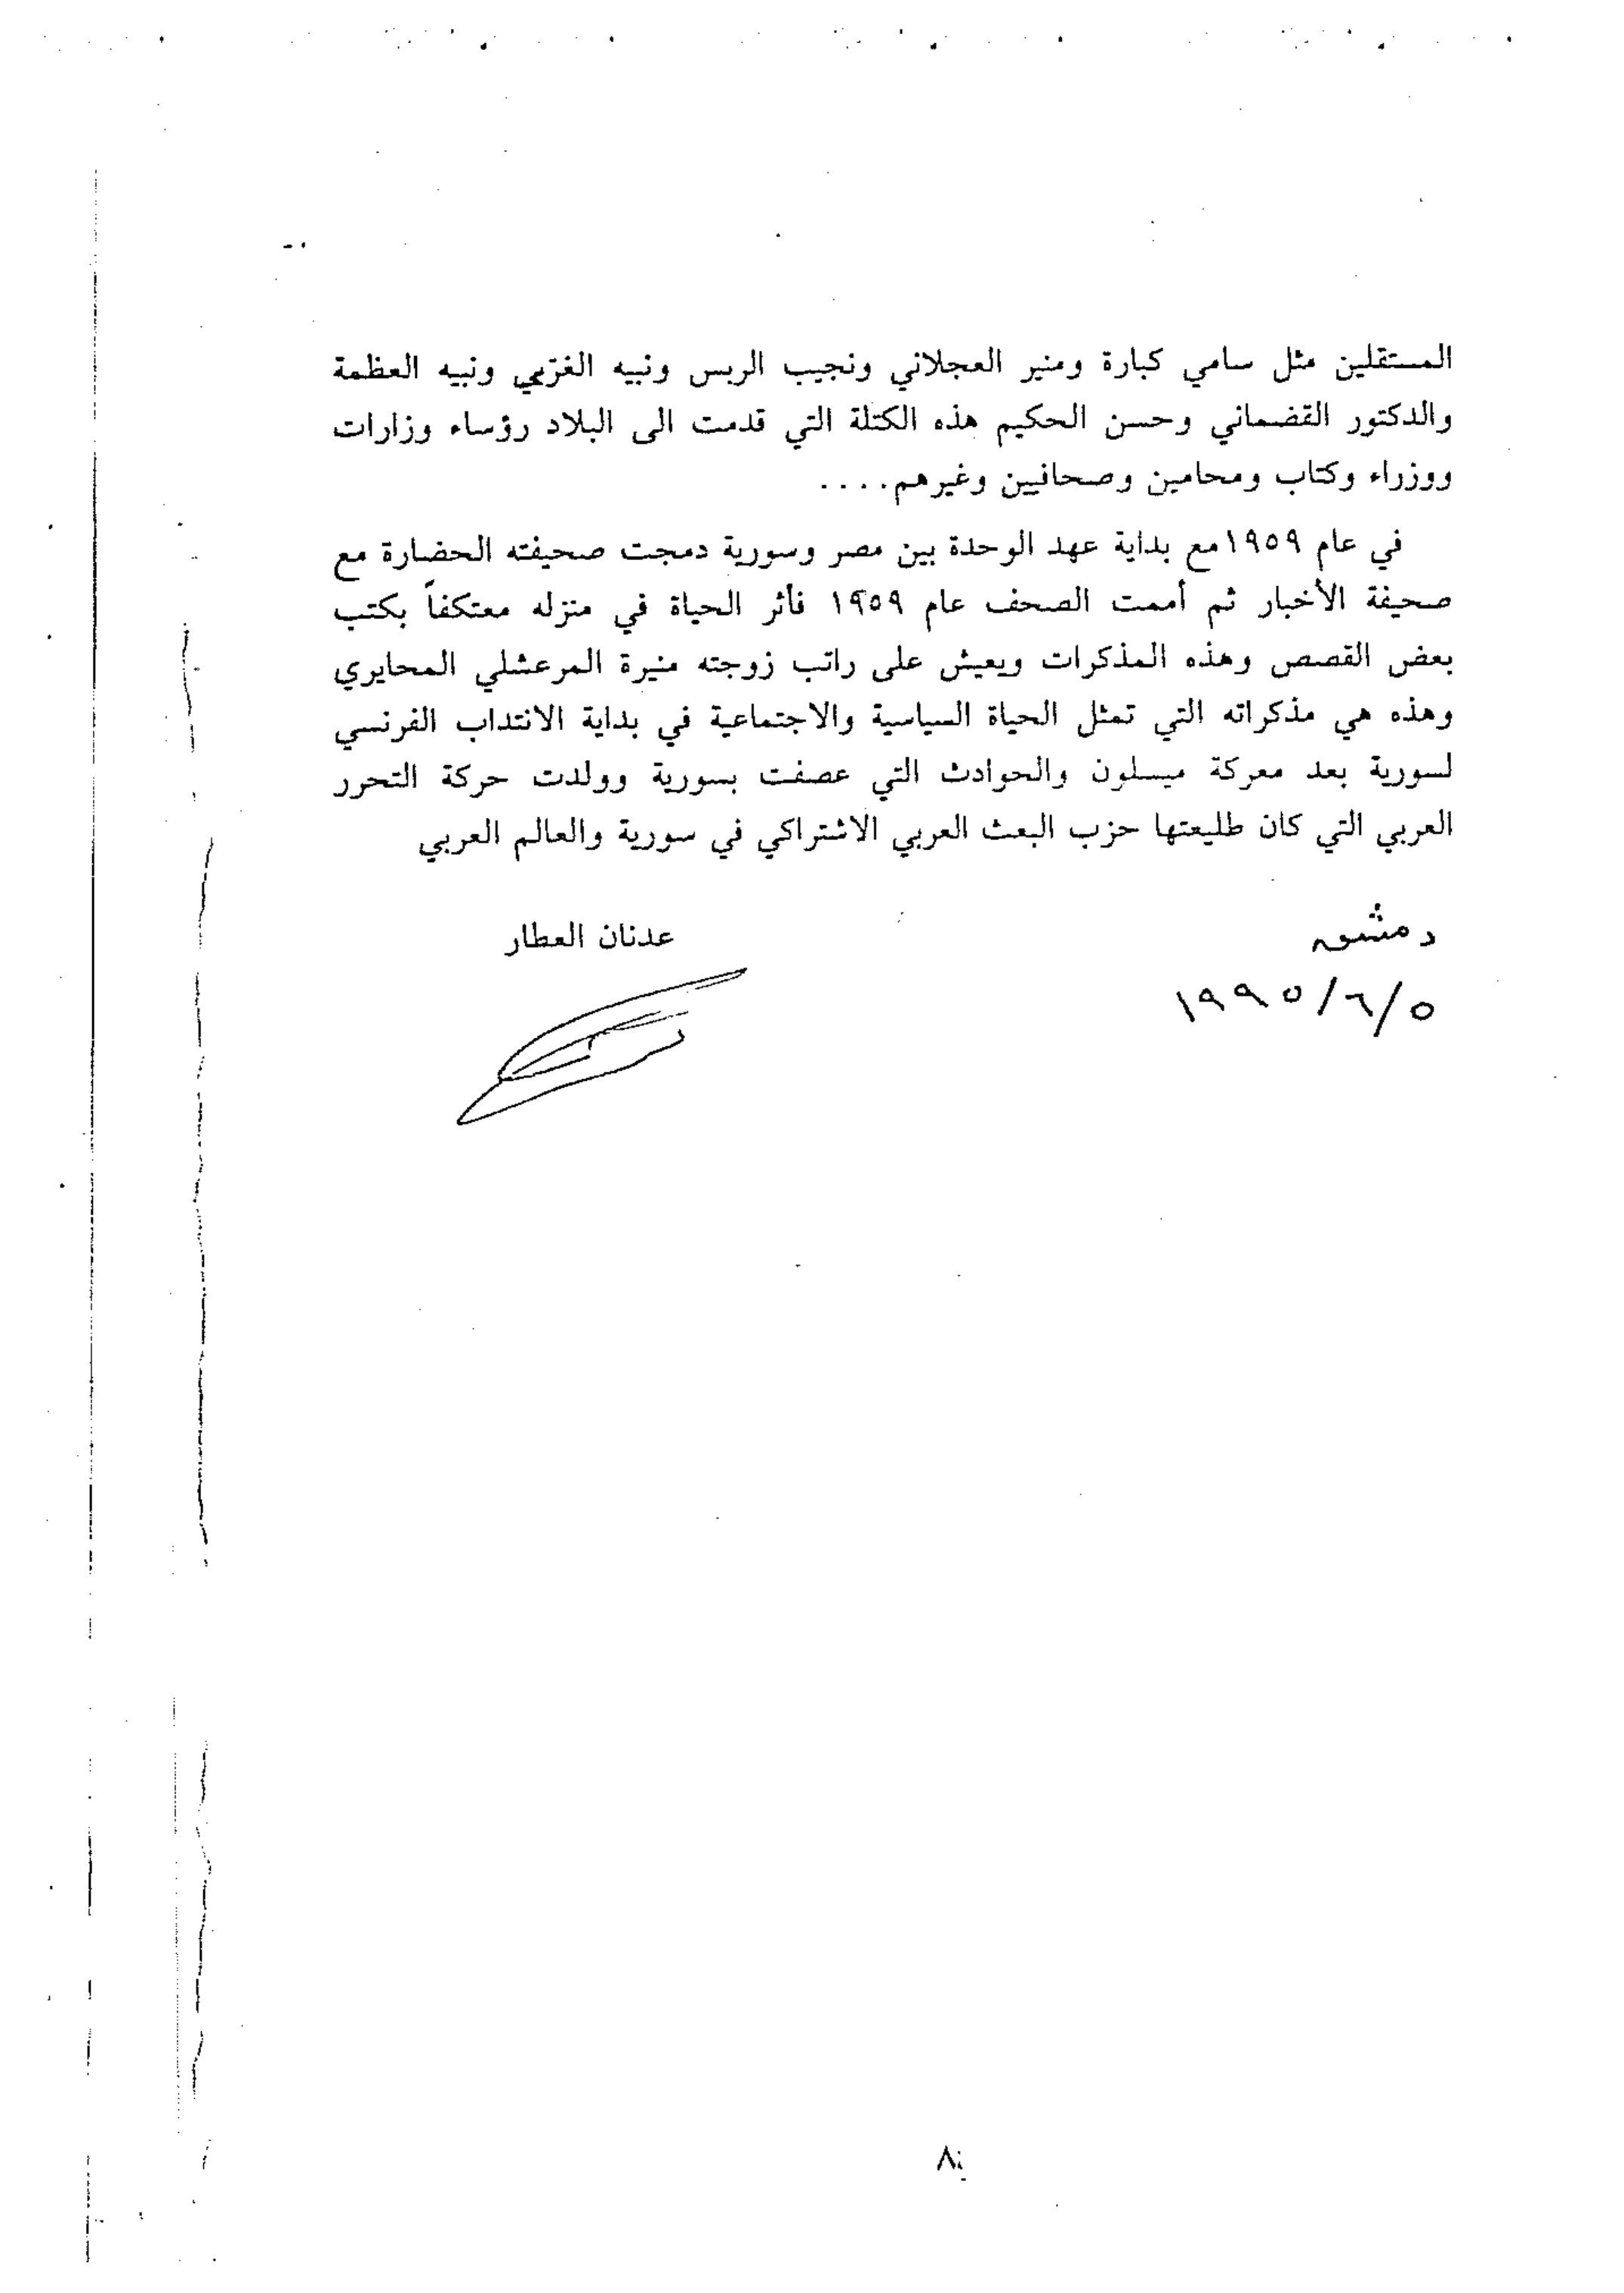 المستقلين مثل سامي كبارة ومنير العجلاني ونجيب الريس ونبيه الغزي ونبيه العظمة
والدكتور القضماني وحسن الحكيم هذه الكتلة التي قدمت الى البلاد رؤساء وزارات
ووزراء وكتاب ومحامين وصحافيين وغيرهم....
في عام ١٩٥٩مع بداية عهد الوحدة بين مصر وسورية دمجت صحيفته الحضارة مع
صحيفة الأخبار ثم أممت الصحف عام ١٩٥٩ فأثر الحياة في منزله معتكفاً بكتب
بعض القصص وهذه المذكرات ويعيش على راتب زوجته منيرة المرعشلي المحايري
وهذه هي مذكراته التي تمثل الحياة السياسية والاجتماعية في بداية الانتداب الفرنسي
لسورية بعد معركة ميسلون والحوادث التي عصفت بسورية وولدت حركة التحرر
العربي التي كان طليعتها حزب البعث العربي الاشتراكي في سورية والعالم العربي
دمشق عدنان العطار
١٩٩٥/٦/٥
٨